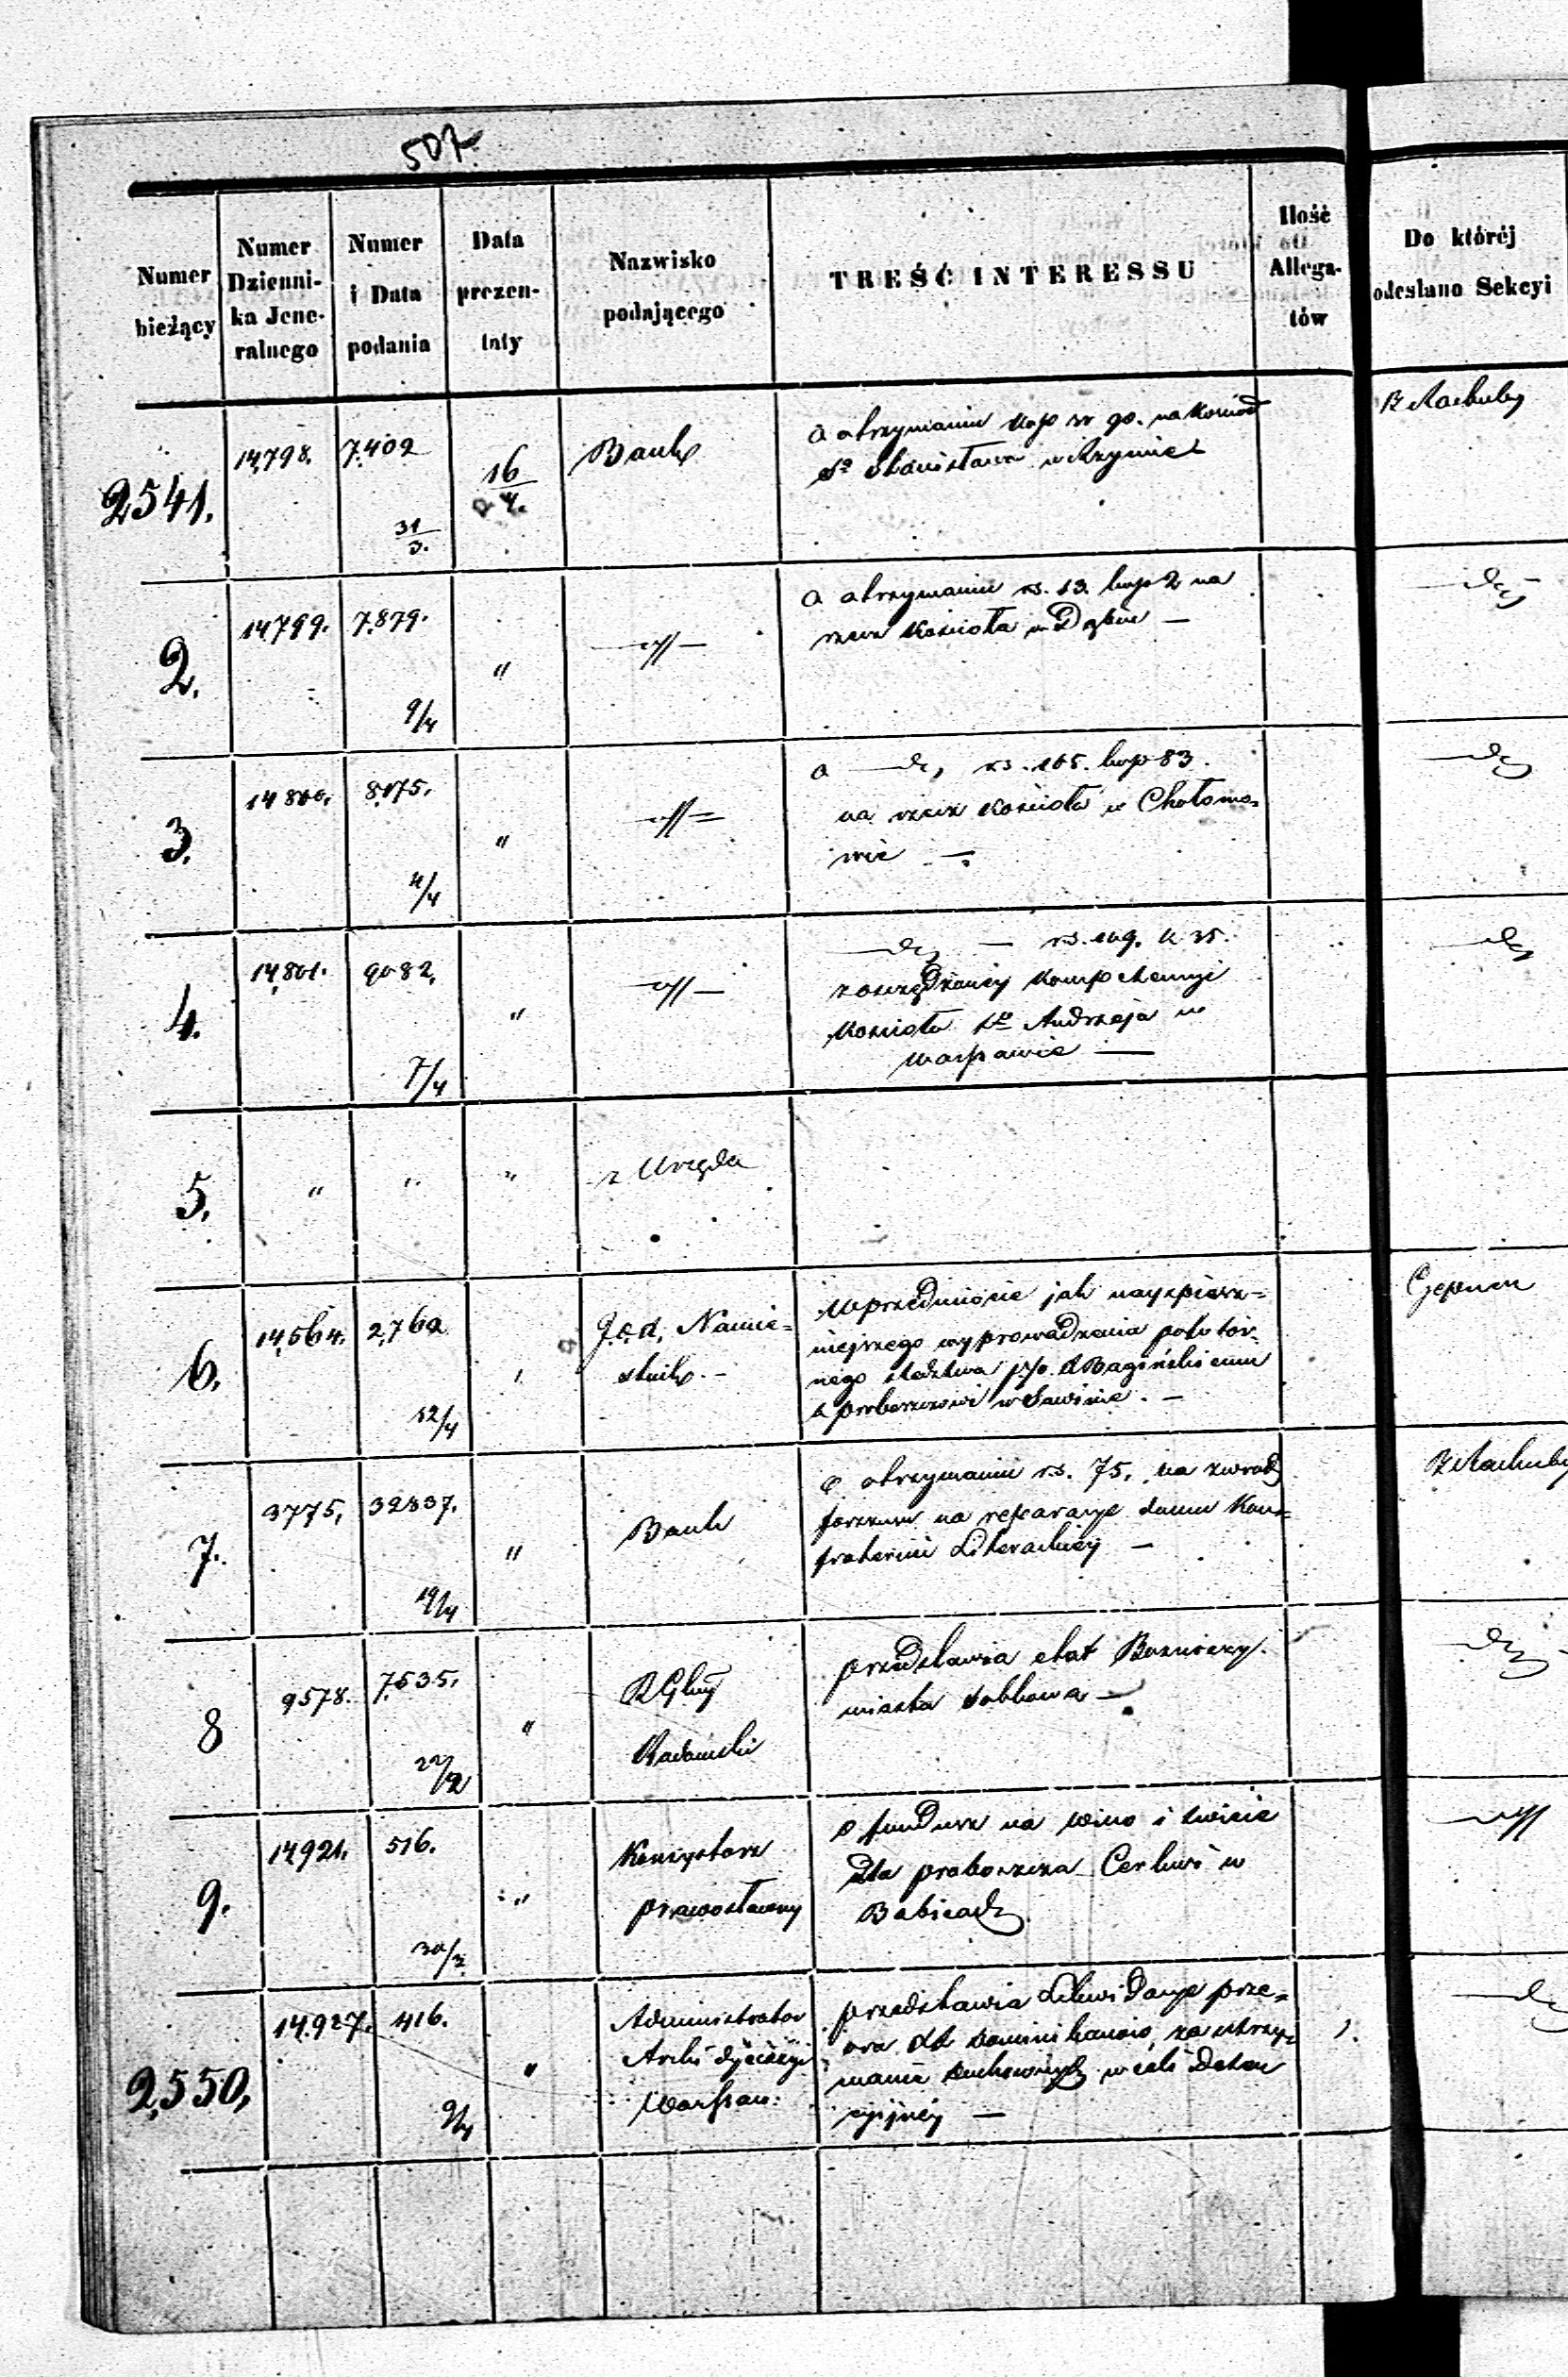 507.
Numer bieżący
Numer Dzienni-ka Jene-ralnego
Numer i Data podania
Data prezen-taty
Nazwisko podającego
TREŚĆ INTERESSU
Ilość Allega-tów
Do któréj odesłano Sekcyi
2541.
14,798.
7.402
31/3.
16/4.
Bank
o otrzymaniu kop sr 90. na Kościół
Sgo Stanisława w Rzymie
2.
14,799.
7.879.
9/4
"
o otrzymaniu rs. 13. kop 2 na
rzecz Kościoła w Dąbiu —
3.
14 800.
8175.
"
o — rs. 165. kop 83.
na rzecz Kościoła w Chotomo=
wie —
4.
14,801.
9082.
7/4
"
— rs. 109. k 35.
Kościoła Sgo Andrzeja w
Warszawie —
5.
"
"
"
z Urzędu
6.
14,564.
2,762
12/4
"
J.O.X. Namie=
stnik. —
w przedmiocie jak najspiesz=
niejszego wyprowadzenia powtór=
nego śledztwa p/o X Bagińskiemu
proboszczowi w Sawinie. —
Czepner
7.
3775,
32837.
19/4
"
Bank
o otrzymaniu rs. 75. na zwrot
forszusu na reparacye domu Kon=
fraterni Literackiey —
8
9578.
7.535.
22/2
"
RGlny
Radomski
przedstawia etat Bóżniczy
miasta —
9.
14,921.
516.
30/3
"
Konsystorz
prawosławny
o fundusz na wino i świece
dla proboszcza Cerkwi w
Babicach
2,550,
14.927.
416.
9/4
"
Administrator
Archi dyecezyi
Warszaw:
przedstawia Likwidacye prze=
ora XX Dominikanów, za utrzy=
manie duchownych w celi Deten
cyjnéy —
1.